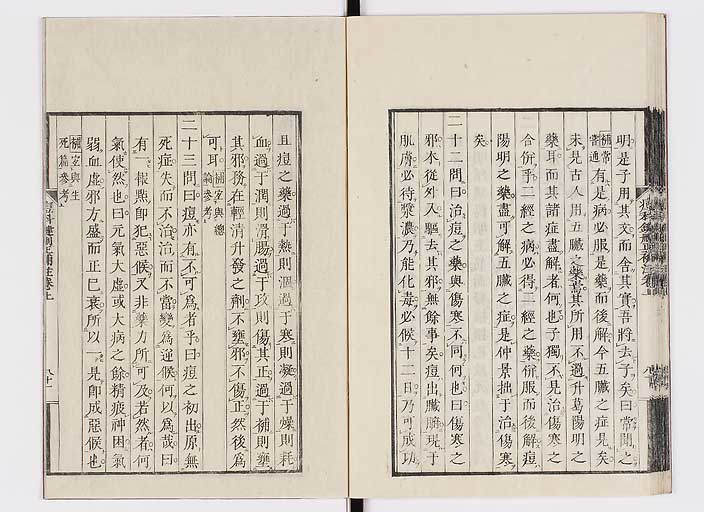 明是子用其文而舍其實吾將去子矣曰常聞之
補常
嘗通
有是病必服是藥而後解今五臟之症是矣
未見古人用五臟之藥焉其所用不過升葛陽明之
藥耳而其諸症盡解者何也子獨不見治傷寒之
合併乎二經之病必得二經之藥併服而後解痘
陽明之藥盡可解五臟之症是仲景拙于治傷寒
矣
二十二問曰治痘之藥與傷寒不同何也曰傷寒之
邪本從外入驅去其邪無餘事矣痘出臟腑現于
肌膚必待漿濃乃能化毒必候十二日乃可成功
且痘之藥過于熱則涸過于寒則凝過于燥則耗
血過于潤則滑腸過于攻則傷其正過于補則壅
其邪務在輕清升發之劑不壅邪不傷正然後為
可耳
補玄與總
論參考
二十三問曰痘亦有不可為者乎曰痘之初出原無
死症失而不治治而不當變為逆候何以為哉曰
有一報點即犯惡候又非藥力所可及若然者何
氣使然也曰元氣大虛或大病之餘精疲神困氣
弱血虛邪方盛而正已衰所以一見即成惡候也
補玄與生
死篇參考
痘科鍵刪正補註卷上